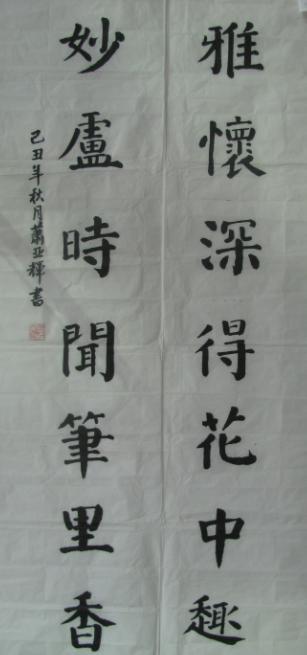 雅懷深得花中趣
妙盧時聞筆里香
己丑年秋月蕭亚輝書